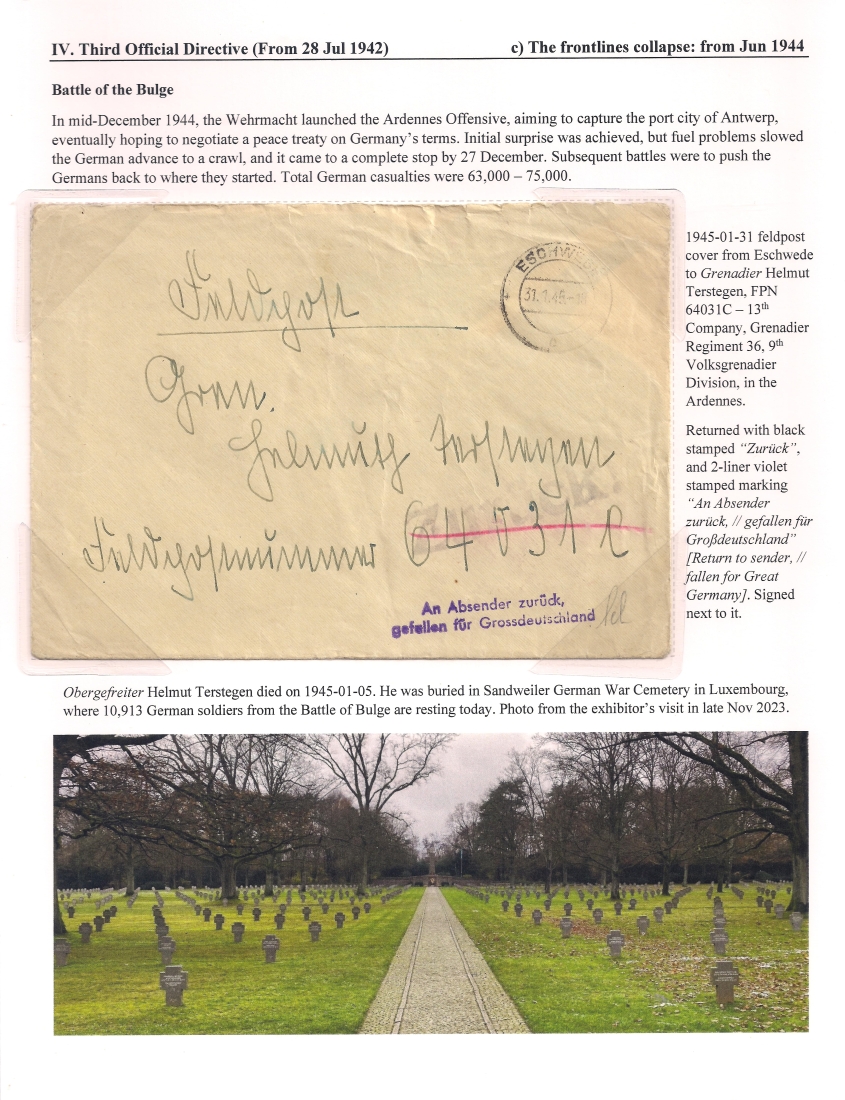 IV. Third Official Directive (From 28 Jul 1942) c) The frontlines collapse: from Jun 1944
Battle of the Bulge
In mid-December 1944, the Wehrmacht launched the Ardennes Offensive, aiming to capture the port city of Antwerp,
eventually hoping to negotiate a peace treaty on Germany's terms. Initial surprise was achieved, but fuel problems slowed
the German advance to a crawl, and it came to a complete stop by 27 December. Subsequent battles were to push the
Germans back to where they started. Total German casualties were 63,000 – 75,000.
ESCHWE
31.1.45
Feldpost
Gren.
Helmuth Terstegen
Feldpostnummer 64031 C
An Absender zurück,
gefallen für Grossdeutschland
1945-01-31 feldpost
cover from Eschwede
to Grenadier Helmut
Terstegen, FPN
64031C – 13th
Company, Grenadier
Regiment 36, 9th
Volksgrenadier
Division, in the
Ardennes.
Returned with black
stamped "Zurück",
and 2-liner violet
stamped marking
"An Absender
zurück, // gefallen für
Großdeutschland"
[Return to sender, //
fallen for Great
Germany]. Signed
next to it.
Obergefreiter Helmut Terstegen died on 1945-01-05. He was buried in Sandweiler German War Cemetery in Luxembourg,
where 10,913 German soldiers from the Battle of Bulge are resting today. Photo from the exhibitor's visit in late Nov 2023.